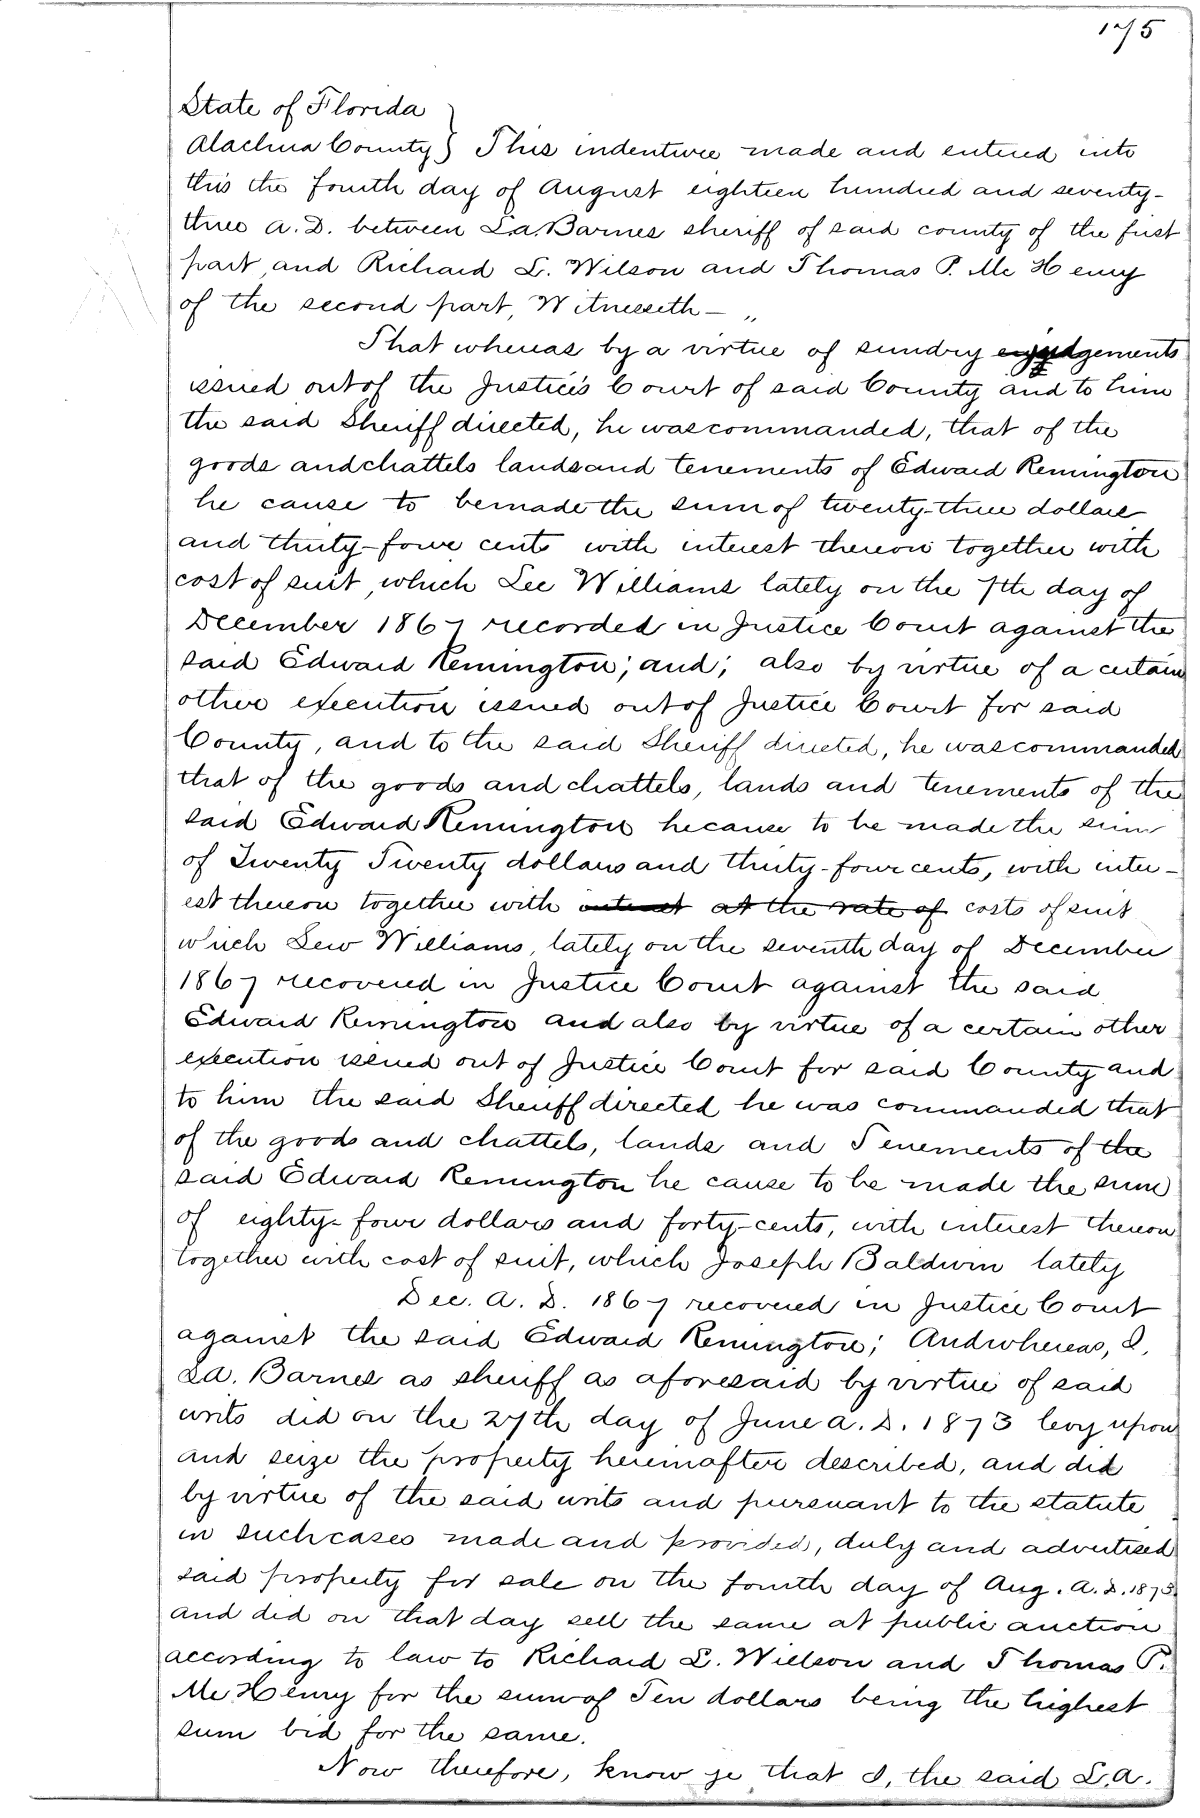 175
State of Florida
Alachua County } This indenture made and entered into
this the fourth day of August eighteen hundred and seventy-
three A.D. between L.A. Barnes sheriff of said county of the first
part, and Richard L. Wilson and Thomas P. Mc Henry
of the second part, Witnesseth — "
That whereas by a virtue of sundry judgements
issued out of the Justice's Court of said County and to him
the said Sheriff directed, he was commanded, that of the
goods and chattels lands and tenements of Edward Remington
he cause to be made the sum of twenty-three dollars
and thirty-four cents with interest thereon together with
cost of suit, which Lee Williams lately on the 7th day of
December 1867 recorded in Justice Court against the
said Edward Remington; and; also by virtue of a certain
other execution issued out of Justice Court for said
County, and to the said Sheriff directed, he was commanded
that of the goods and chattels, lands and tenements of the
said Edward Remington he cause to be made the sum
of Twenty Twenty dollars and thirty-four cents, with inter-
est thereon together with interest at the rate of costs of suit
which Lew Williams, lately on the seventh day of December
1867 recovered in Justice Court against the said
Edward Remington and also by virtue of a certain other
execution issued out of Justice Court for said County and
to him the said Sheriff directed he was commanded that
of the goods and chattels, lands and Tenements of the
said Edward Remington he cause to be made the sum
of eighty-four dollars and forty-cents, with interest thereon
together with cost of suit, which Joseph Baldwin lately
Dec. A. D. 1867 recovered in Justice Court
against the said Edward Remington; And whereas, I,
L.A. Barnes as sheriff as aforesaid by virtue of said
writs did on the 27th day of June A. D. 1873 levy upon
and seize the property hereinafter described, and did
by virtue of the said writs and pursuant to the statute
in such cases made and provided, duly and advertised
said property for sale on the fourth day of Aug. A.D. 1873.
and did on that day sell the same at public auction
according to law to Richard L. Willson and Thomas P.
Mc Henry for the sum of Ten dollars being the highest
sum bid for the same.
Now therefore, know ye that I, the said L.A.